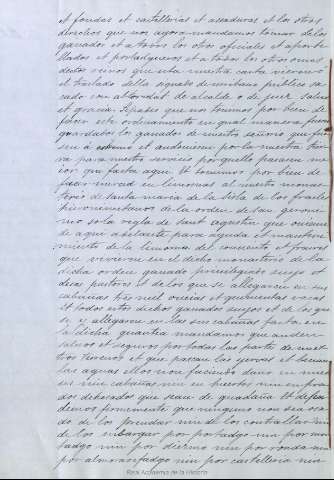 et fondas et castellerias et asaduras et los otros
derechos que nos agora mandamos tomar delos
ganados et a todos los otros oficiales et aporte
llados et portadgueros et a todos los otros omes
destos reinos que esta nuestra carta vieren o
el traslado della signado de escribano público sa
cado con abtoridat de alcalde o de juez salut
et gracia. Sepades que nos tenemos por bien de
facer este ordenamiento en qual manera fuesen
guardados los ganados de nuestro señorio que fue
sen á estremo et andodiesen por la nuestra tier
ra para nuestro servicio por quello pasasen me
ior que fasta aqui. Et tenemos por bien de
facer merced en limosna al nuestro monas
terio de santa maria de la Sisla de los frailes
hieronimitanos de la orden de san geroni
mo so la regla de sant agustin que ovieren
de aqui adelante para ayuda et manteni
miento de la limosna del convento et fraires
que vivieren en el dicho monasterio de la
dicha orden ganado previlegiado suyo et
de sus pastores et de los que se allegaren en sus
cabañas tres mil ovejas et quinientas vacas
et todos estos dichos ganados suyos et de los que
se y allegaren en las sus cabañas fasta en
la dicha quantia mandamos que anden
salvos et seguros por todas las partes de nues
tros regnos et que pascan las yervas et bevan
las aguas ellos non faciendo daño en mie
ses nin en viñas nin en huertos nin en pra
dos dehesados que sean de guadaña Et defen
demos firmemente que ninguno non sea osa
do de los prendar nin de los contrallar nin
de los embargar por portadgo nin por mon
tadgo nin por diezmo nin por ronda nin
por almojarifadgo nin por castelleria nin
Real Academia de la Historia